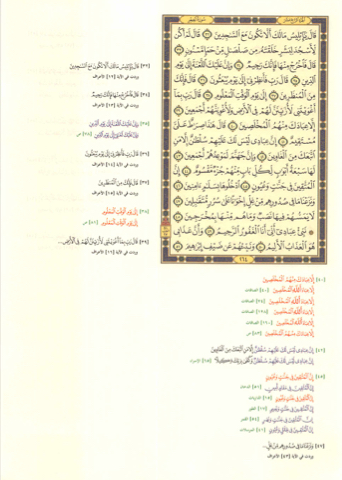 قَالَ يَٰٓإِبْلِيسُ مَا لَكَ أَلَّا تَكُونَ مَعَ ٱلسَّٰجِدِينَ ٣٢ قَالَ لَمْ أَكُن
لِّأَسْجُدَ لِبَشَرٍ خَلَقْتَهُۥ مِن صَلْصَٰلٍ مِّنْ حَمَإٍ مَّسْنُونٍ ٣٣
قَالَ فَٱخْرُجْ مِنْهَا فَإِنَّكَ رَجِيمٌ ٣٤ وَإِنَّ عَلَيْكَ ٱللَّعْنَةَ إِلَىٰ يَوْمِ
ٱلدِّينِ ٣٥ قَالَ رَبِّ فَأَنظِرْنِىٓ إِلَىٰ يَوْمِ يُبْعَثُونَ ٣٦ قَالَ فَإِنَّكَ مِنَ
ٱلْمُنظَرِينَ ٣٧ إِلَىٰ يَوْمِ ٱلْوَقْتِ ٱلْمَعْلُومِ ٣٨ قَالَ رَبِّ بِمَآ
أَغْوَيْتَنِى لَأُزَيِّنَنَّ لَهُمْ فِى ٱلْأَرْضِ وَلَأُغْوِيَنَّهُمْ أَجْمَعِينَ ٣٩
إِلَّا عِبَادَكَ مِنْهُمُ ٱلْمُخْلَصِينَ ٤٠ قَالَ هَٰذَا صِرَٰطٌ عَلَىَّ
مُسْتَقِيمٌ ٤١ إِنَّ عِبَادِى لَيْسَ لَكَ عَلَيْهِمْ سُلْطَٰنٌ إِلَّا مَنِ
ٱتَّبَعَكَ مِنَ ٱلْغَاوِينَ ٤٢ وَإِنَّ جَهَنَّمَ لَمَوْعِدُهُمْ أَجْمَعِينَ ٤٣
لَهَا سَبْعَةُ أَبْوَٰبٍ لِّكُلِّ بَابٍ مِّنْهُمْ جُزْءٌ مَّقْسُومٌ ٤٤ إِنَّ
ٱلْمُتَّقِينَ فِى جَنَّٰتٍ وَعُيُونٍ ٤٥ ٱدْخُلُوهَا بِسَلَٰمٍ ءَامِنِينَ ٤٦
وَنَزَعْنَا مَا فِى صُدُورِهِم مِّنْ غِلٍّ إِخْوَٰنًا عَلَىٰ سُرُرٍ مُّتَقَٰبِلِينَ ٤٧
لَا يَمَسُّهُمْ فِيهَا نَصَبٌ وَمَا هُم مِّنْهَا بِمُخْرَجِينَ ٤٨
۞ نَبِّئْ عِبَادِىٓ أَنِّىٓ أَنَا ٱلْغَفُورُ ٱلرَّحِيمُ ٤٩ وَأَنَّ عَذَابِى
هُوَ ٱلْعَذَابُ ٱلْأَلِيمُ ٥٠ وَنَبِّئْهُمْ عَن ضَيْفِ إِبْرَٰهِيمَ ٥١
٢٦٤
[٣٢] قَالَ يَٰٓإِبْلِيسُ مَا لَكَ أَلَّا تَكُونَ مَعَ ٱلسَّٰجِدِينَ
وردت في الآية [١٢] الأعراف
[٣٤] قَالَ فَٱخْرُجْ مِنْهَا فَإِنَّكَ رَجِيمٌ
وردت في الآية [١٣] الأعراف
[٣٥] وَإِنَّ عَلَيْكَ ٱللَّعْنَةَ إِلَىٰ يَوْمِ ٱلدِّينِ
وَإِنَّ عَلَيْكَ لَعْنَتِىٓ إِلَىٰ يَوْمِ ٱلدِّينِ [٧٨] ص
[٣٦] قَالَ رَبِّ فَأَنظِرْنِىٓ إِلَىٰ يَوْمِ يُبْعَثُونَ
وردت في الآية [١٤] الأعراف
[٣٧] قَالَ فَإِنَّكَ مِنَ ٱلْمُنظَرِينَ
وردت في الآية [١٥] الأعراف
[٣٨] إِلَىٰ يَوْمِ ٱلْوَقْتِ ٱلْمَعْلُومِ
إِلَىٰ يَوْمِ ٱلْوَقْتِ ٱلْمَعْلُومِ [٨١] ص
[٣٩] قَالَ رَبِّ بِمَآ أَغْوَيْتَنِى لَأُزَيِّنَنَّ لَهُمْ فِى ٱلْأَرْضِ ...
وردت في الآية [١٦] الأعراف
[٤٠] إِلَّا عِبَادَكَ مِنْهُمُ ٱلْمُخْلَصِينَ
إِلَّا عِبَادَ ٱللَّهِ ٱلْمُخْلَصِينَ [٤٠] الصافات
إِلَّا عِبَادَ ٱللَّهِ ٱلْمُخْلَصِينَ [٧٤] الصافات
إِلَّا عِبَادَ ٱللَّهِ ٱلْمُخْلَصِينَ [١٢٨] الصافات
إِلَّا عِبَادَ ٱللَّهِ ٱلْمُخْلَصِينَ [١٦٠] الصافات
إِلَّا عِبَادَكَ مِنْهُمُ ٱلْمُخْلَصِينَ [٨٣] ص
[٤٢] إِنَّ عِبَادِى لَيْسَ لَكَ عَلَيْهِمْ سُلْطَٰنٌ إِلَّا مَنِ ٱتَّبَعَكَ مِنَ ٱلْغَاوِينَ
إِنَّ عِبَادِى لَيْسَ لَكَ عَلَيْهِمْ سُلْطَٰنٌ وَكَفَىٰ بِرَبِّكَ وَكِيلًا [٦٥] الإسراء
[٤٥] إِنَّ ٱلْمُتَّقِينَ فِى جَنَّٰتٍ وَعُيُونٍ
إِنَّ ٱلْمُتَّقِينَ فِى مَقَامٍ أَمِينٍ [٥١] الدخان
إِنَّ ٱلْمُتَّقِينَ فِى جَنَّٰتٍ وَعُيُونٍ [١٥] الذاريات
إِنَّ ٱلْمُتَّقِينَ فِى جَنَّٰتٍ وَنَعِيمٍ [١٧] الطور
إِنَّ ٱلْمُتَّقِينَ فِى جَنَّٰتٍ وَنَهَرٍ [٥٤] القمر
إِنَّ ٱلْمُتَّقِينَ فِى ظِلَٰلٍ وَعُيُونٍ [٤١] المرسلات
[٤٧] وَنَزَعْنَا مَا فِى صُدُورِهِم مِّنْ غِلٍّ ...
وردت في الآية [٤٣] الأعراف